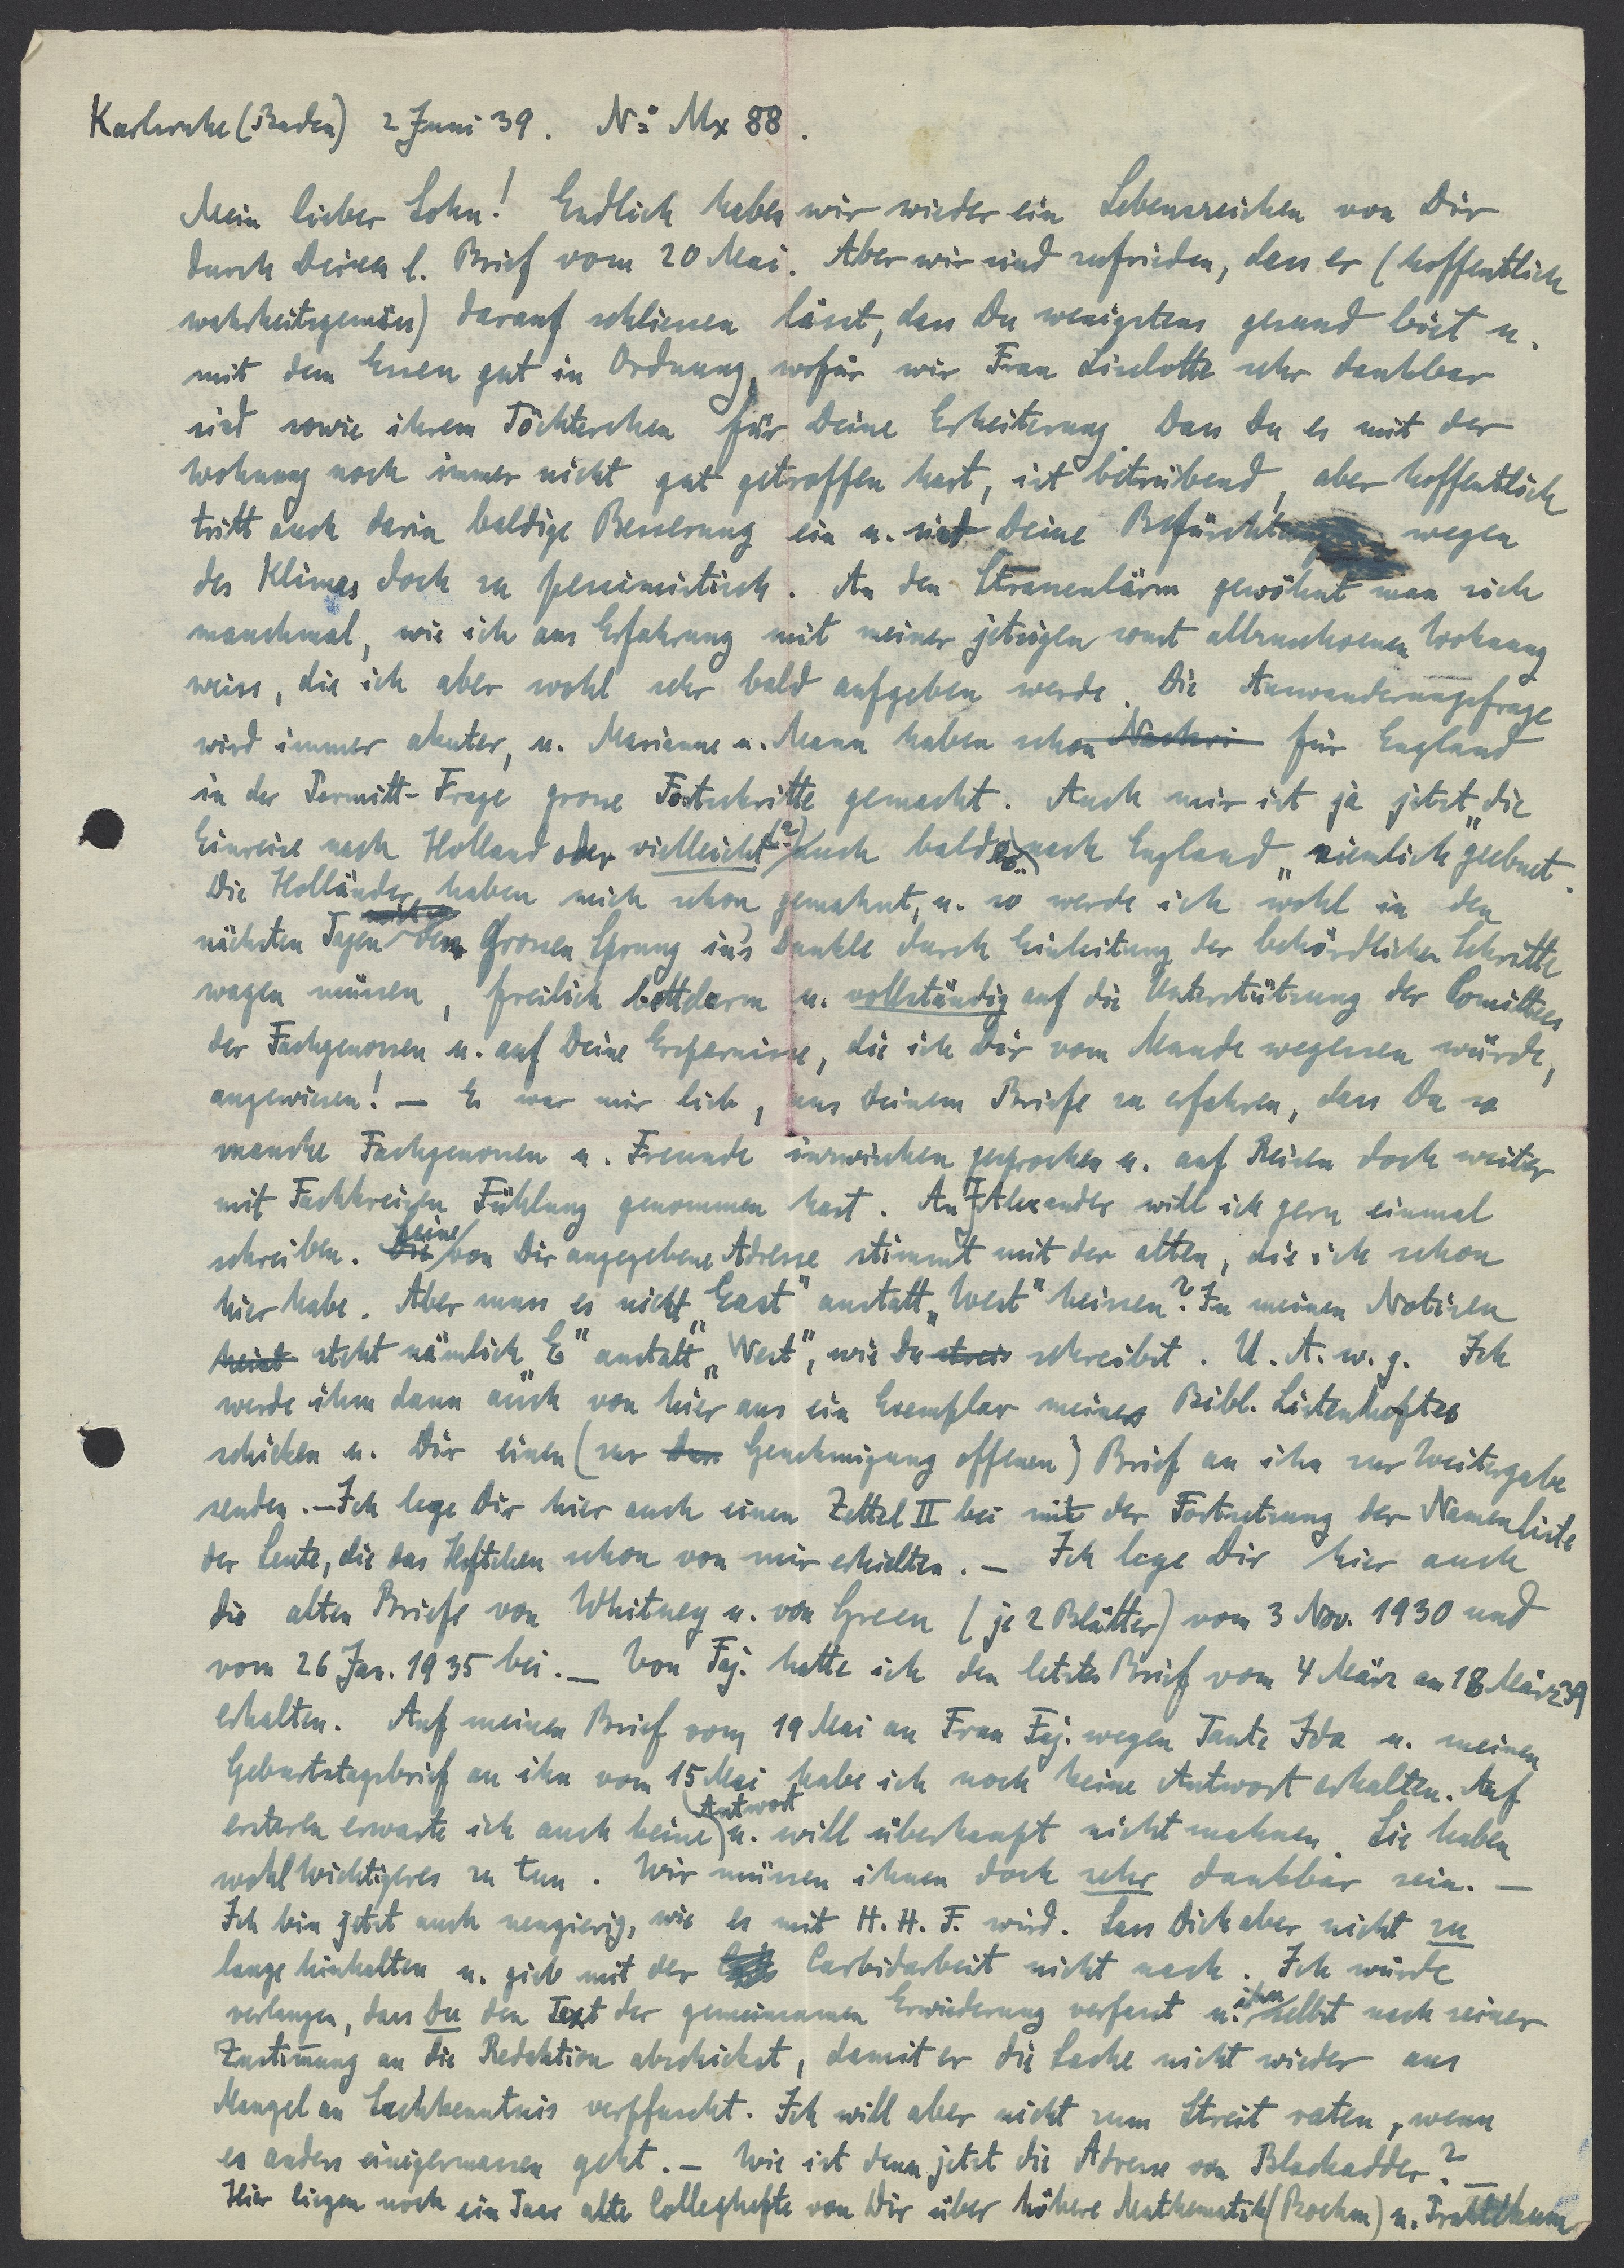 Karlsruhe (Baden) 2 Juni 39. No Mx 88.
Mein lieber Sohn! Endlich haben wir wieder ein Lebenszeichen von Dir
durch Deinen l. Brief vom 20 Mai. Aber wir sind zufrieden, dass er (hoffentlich
wahrheitsgemäss) darauf schliessen lässt, dass Du wenigstens gesund bist u.
mit dem Essen gut in Ordnung, wofür wir Frau Liselotte sehr dankbar
sind sowie ihrem Töchterchen für Deine Erheiterung. Dass Du es mit der
Wohnung noch immer nicht gut getroffen hast, ist betrübend, aber hoffentlich
tritt auch darin baldige Besserung ein u. sind Deine Befürchtungen wegen
des Klimas doch zu pessimistisch. An den Strassenlärm gewöhnt man sich
manchmal, wie ich aus Erfahrung mit meiner jetzigen sonst allzuschoenen Wohnung
weiss, die ich aber wohl sehr bald aufgeben werde. Die Auswanderungsfrage
wird immer akuter, u. Marianne u. Mann haben schon Nachri für England
in der Permitt-Frage grosse Fortschritte gemacht. Auch mir ist ja jetzt „die
Einreise nach Holland oder vielleicht (?) auch bald nach England" ziemlich geebnet.
Die Holländer haben mich schon gemahnt, u. so werde ich wohl in den
nächsten Tagen den Grossen Sprung in's Dunkle durch Einleitung der behördlichen Schritte
wagen müssen, freilich bettelarm u. vollständig auf die Unterstützung der Comittees
der Fachgenossen u. auf Deine Ersparnisse, die ich Dir vom Munde wegessen würde,
angewiesen! — Es war mir lieb, aus Deinem Briefe zu erfahren, dass Du so
manche Fachgenossen u. Freunde inzwischen gesprochen u. auf Reisen doch weiter
mit Fachkreisen Fühlung genommen hast. An J. Alexander will ich gern einmal
schreiben. Die Deine von Dir angegebene Adresse stimmt mit der alten, die ich schon
hier habe. Aber muss es nicht „East" anstatt „West" heissen? In meinen Notizen
heisst steht nämlich „E" anstatt „West", wie Du schreibst. U. A. w. g. Ich
werde ihm dann auch von hier aus ein Exemplar meines Bibl. Listenheftes
schicken u. Dir einen (zur Genehmigung offenen) Brief an ihn zur Weitergabe
senden. — Ich lege Dir hier auch einen Zettel II bei mit der Fortsetzung der Namenliste
der Leute, die das Heftchen schon von mir erhielten. — Ich lege Dir hier auch
die alten Briefe von Whitney u. von Green (je 2 Blätter) vom 3 Nov. 1930 und
vom 26 Jan. 1935 bei. — Von Faj. hatte ich den letzten Brief vom 4 März am 18 März 39
erhalten. Auf meinen Brief vom 19 Mai an Frau Faj. wegen Tante Ida u. meinen
Geburtstagsbrief an ihn vom 15 Mai habe ich noch keine Antwort erhalten. Auf
ersteren erwarte ich auch keine Antwort u. will überhaupt nicht mahnen. Sie haben
wohl Wichtigeres zu tun. Wir müssen ihnen doch sehr dankbar sein. —
Ich bin jetzt auch neugierig, wie es mit H. H. F. wird. Lass Dich aber nicht zu
lange hinhalten u. gieb mit der Carbidarbeit nicht nach. Ich würde
verlangen, dass Du den Text der gemeinsamen Erwiederung verfasst u. ihn selbst nach seiner
Zustimmung an die Redaktion abschickst, damit er die Sache nicht wieder aus
Mangel an Sachkenntnis verpfuscht. Ich will aber nicht zum Streit raten, wenn
es anders einigermassen geht. — Wie ist denn jetzt die Adresse von Blackadder? —
Hier liegen noch ein Paar alte Colleghefte von Dir über höhere Mathematik (Boehm) u.